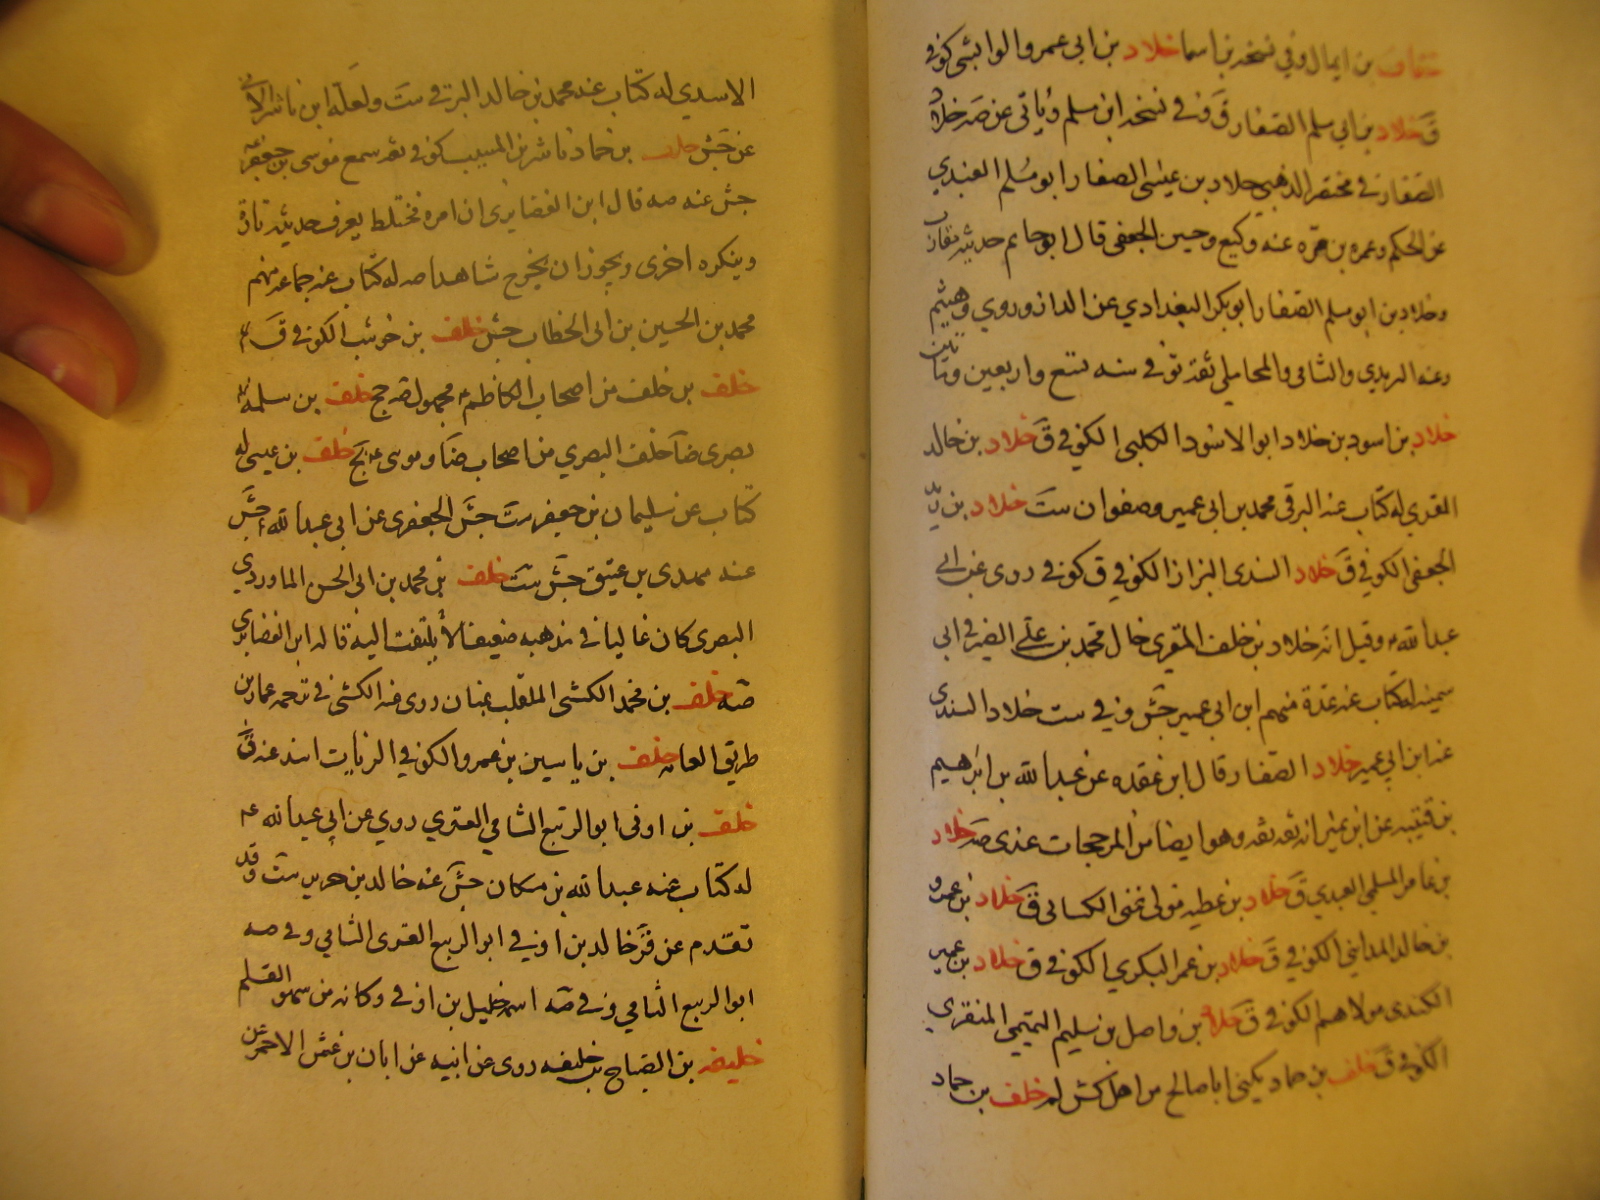 بن ايمال وفي نسخه بن اسما خلاد بن ابي عمرو الوابشي كوفي
ق خلاد بن ابي مسلم الصفار ق وفي نسخه ابن مسلم وياتي عن صه خلاد
الصفار في مختصر الذهبي خلاد بن عيسى الصفار ابو مسلم العبدي
عن الحكم وعمرو بن مره عنه وكيع وحسين الجعفي قال ابو حاتم حديثه متقارب
وخلاد بن ابو مسلم الصفار ابو بكر البغدادي عن الداروردي وهشيم
وعنه والمحاملي ثقة توفي سنه تسع واربعين وماتين
خلاد بن اسود بن خلاد ابو الاسود الكلبي الكوفي ق خلاد بن خالد
المقري له كتاب عنه البرقي محمد بن ابي عمير وصفوان ست خلاد بن
الجعفي الكوفي ق خلاد السندي البزاز الكوفي ق كوفي روى عن ابي
عبد الله ع وقيل انه خلاد بن خلف المقري خال محمد بن علي الصيرفي ابي
سمينه له كتاب عنه عدة منهم ابن ابي عمير جش وفي ست خلاد السندي
عنه ابن ابي عمير خلاد الصفار قال ابن عقده عن عبد الله بن ابراهيم
بن قتيبه عن ابن نمير انه ثقه ثقه وهو ايضا من المرجحات عندي صه خلاد
بن عامر المسلي العبدي ق خلاد بن عطيه مولى غني الكسائي ق خلاد بن عمرو
بن خالد المدايني الكوفي ق خلاد بن عمر البكري الكوفي ق خلاد بن عمير
الكندي مولاهم الكوفي ق خلاد بن واصل بن سليم التميمي المنقري
الكوفي ق خلف بن حماد يكنى ابا صالح من اهل كش لم خلف بن حماد
الاسدي له كتاب عنه محمد بن خالد البرقي ست ولعله ابن ناشر الاتي
عن جش خلف بن حماد ناشر بن المسيب كوفي ثقه سمع موسى بن جعفر ع
جش عنه صه قال ابن الغضايري ان امره مختلط يعرف حديثه تارة
وينكره اخرى ويجوز ان يخرج شاهدا صه له كتاب عنه جماعه منهم
محمد بن الحسين بن ابي الخطاب جش خلف بن حوشب الكوفي ق
خلف بن خلف من اصحاب الكاظم ع مجهول صه جخ خلف بن سلمه
بصرى ضا خلف البصري من اصحاب ضا وموسى ع جخ خلف بن عيسى له
كتاب عن سليمان بن جعفر ست جش الجعفرى عن ابي عبد الله ع جش
عنه مهدى بن عتيق جش ست خلف بن محمد بن ابي الحسن الماوردي
البصرى كان غاليا في مذهبه ضعيفا لا يلتفت اليه قاله ابن الغضايري
صه خلف بن محمد الكشي الملقب بمنان روى عنه الكشى في ترجمه عمار من
طريق العامه خلف بن ياسين بن عمرو الكوفي الزيات اسند عنه ق
خلف بن اوفى ابو الربيع الشامي العنزي روي عن ابي عبد الله ع
له كتاب عنه عبد الله بن مسكان جش عنه خالد بن جرير ست وقد
تقدم عن ق خالد بن اوفي ابو الربيع العنزي الشامي وفي صه
ابو الربيع الشامي وفي صه اسمه خليل بن اوفى وكانه من سهو القلم
خليفه بن الصباح بن خليفه روى عن ابيه عن ابان بن عثمن الاحمر